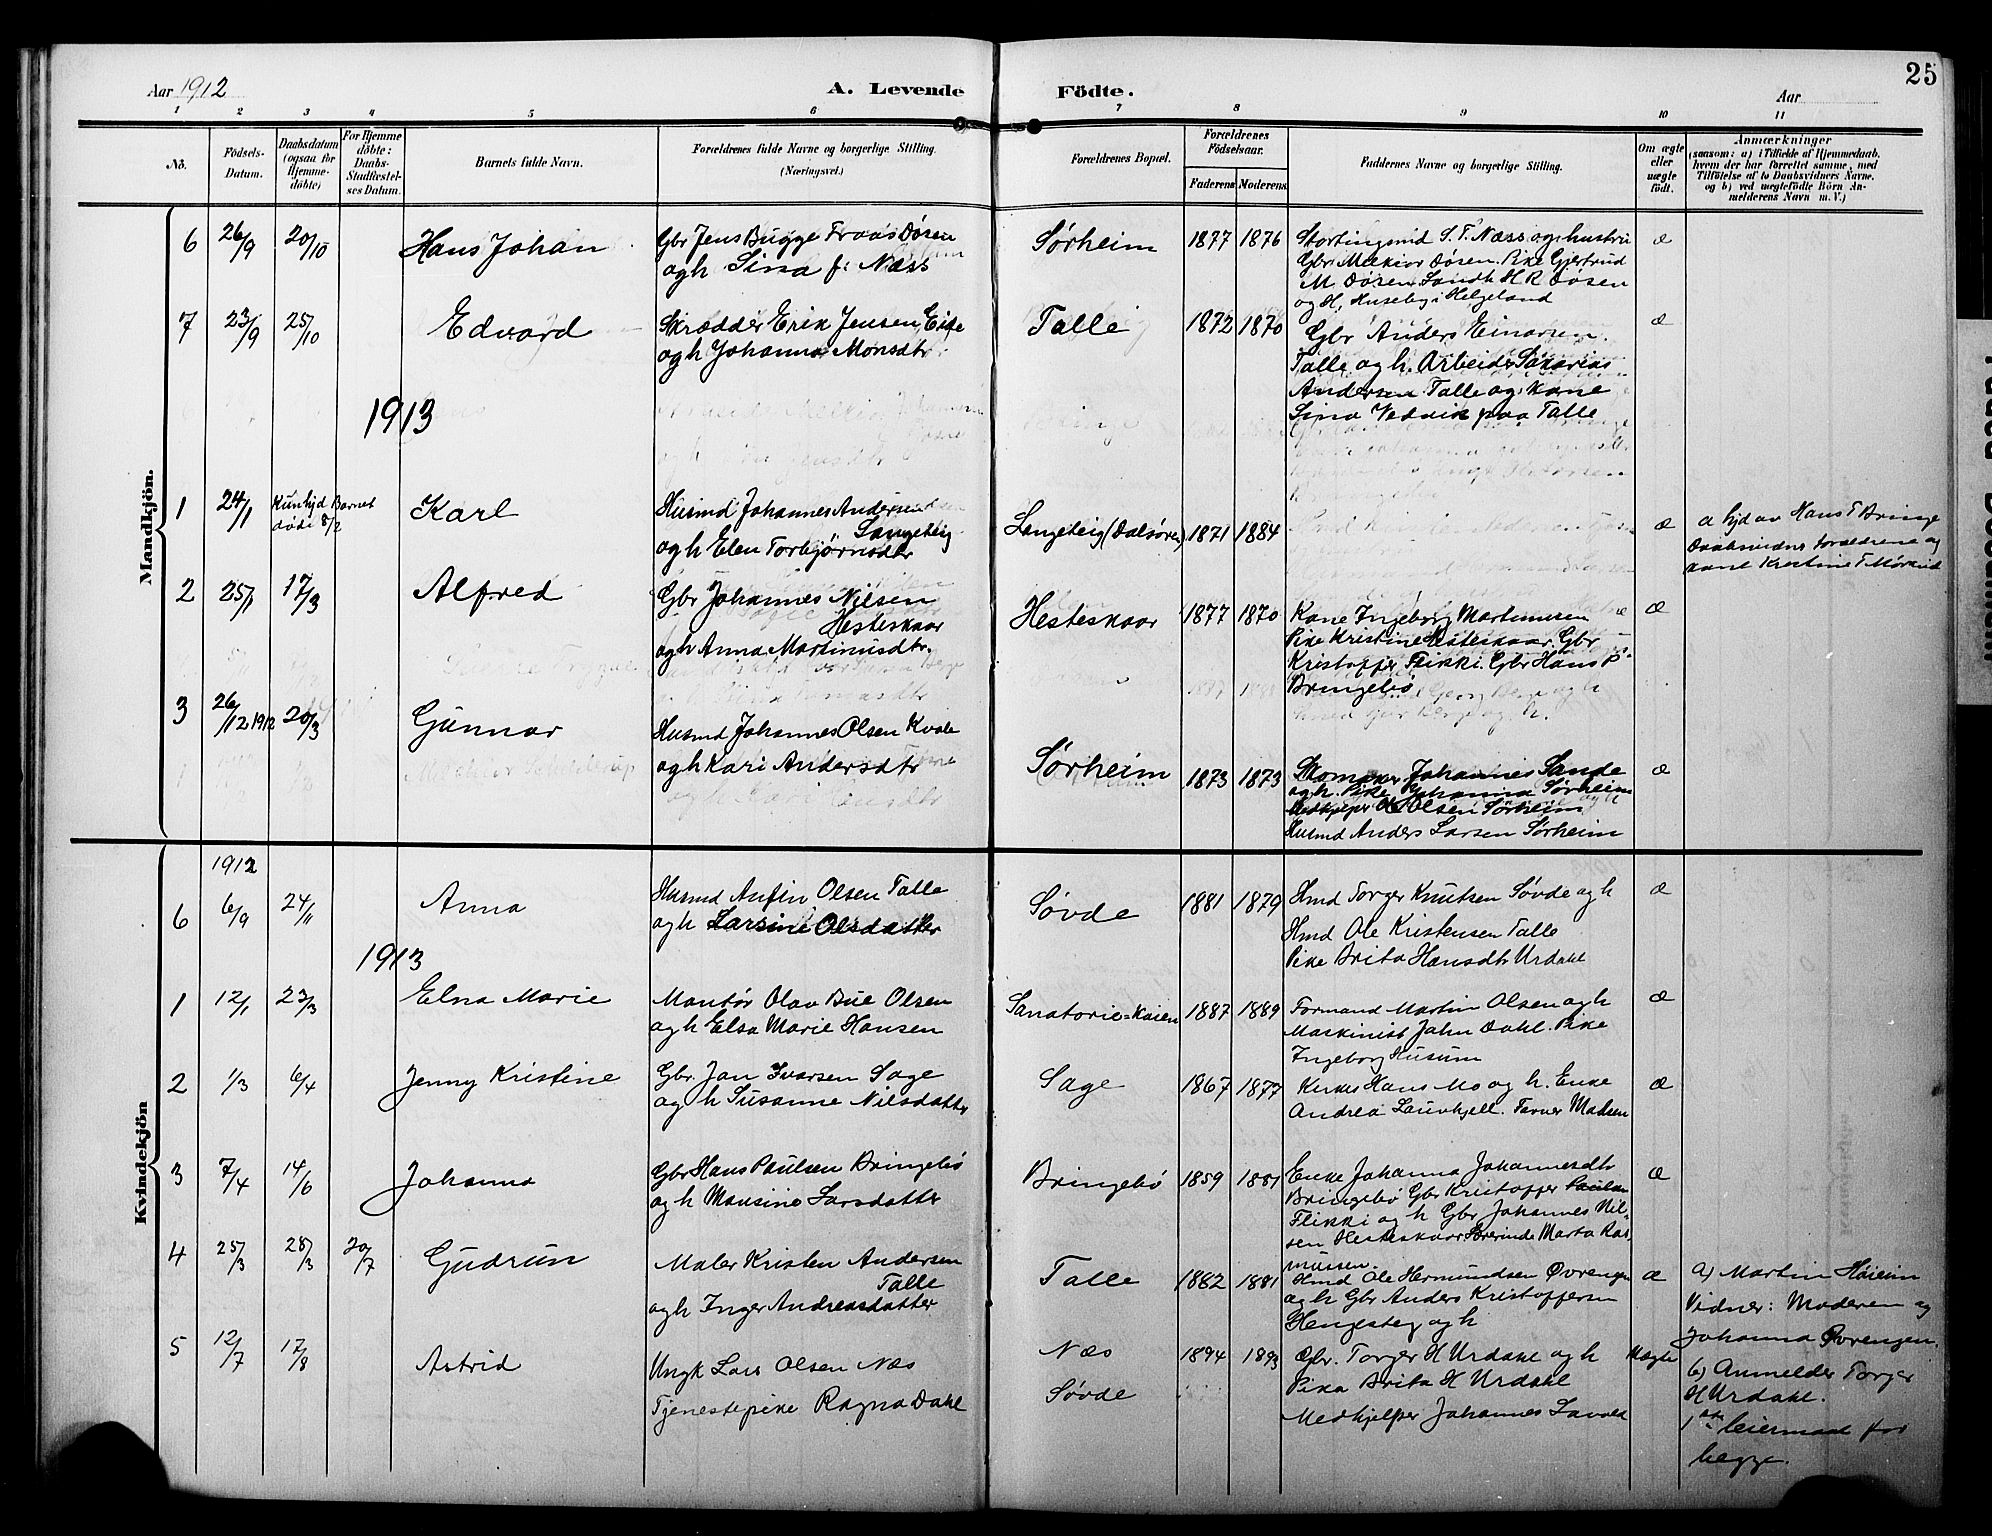 Aar 1912 A. Levende Födte. Aar 25
1 2 3 4 5 6 7 8 9 10 11
Nö. Födsels-Datum. Daabsdatum (ogsaa for Hjemme-döbte) For Hjemme döbte: Daabs-Stadfæstel-ses Datum. Barnets fulde Navn. Forældrenes fulde Navne og borgerlige Stilling. (Næringsvei.) Forældrenes Bopæl. Forældrenes Födselsaar. Faderens Moderens Faddernes Navne og borgerlige Stilling. Om ægte eller uægte födt. Anmærkninger (saasom: a) i Tilfælde af Hjemmedaab. hvem der har forrettet samme, med Tilföielse af to Daabsvidners Navne. og b) ved uægtefödte Börn An-melderens Navn m.V.)
Mandkjön.
6 26/9 20/10 Hans Johan Gbr Jens Bugge Døsen
og h Sina f: Næss
Sørheim 1877 1876 Stortingsmd S. T. Næss og hustru
Gbr Melkior Døsen. Pike Gjertrud
M Døsen Landh H R Døsen
og H, Huseby i Helgeland
æ
7 23/9 25/10 Edvard Skrædder Erik Jensen Eide
og h Johanna Monsdtr
Talle 1872 1870 Gbr Anders Einarsen
Talle og h. Arbeider Sakarias
Andersen Talle og kone
Sina Vedvik paa Talle
æ
1913
1 24/1 Kun hjd Barnet
døde 8/2
Karl Husmd Johannes Andersen
Langeteig
og h Elen Torbjørnsdtr
Langeteig (Dalsøren) 1871 1884 æ a hjd av Hans T Bringe
Daabsvidner forældrene og
kone Kristine T Mørkrid
2 25/1 17/3 Alfred Gbr Johannes Nilsen
Hesteskaar
og h Anna Martinusdtr.
Hesteskaar 1877 1870 Kone Ingeborg Martinussen
Pike Kristine Hesteskaar. Gbr
Kristoffer Flikki. Gbr Hans P
Bringebø
æ
3 26/12 1912 20/3 Gunnar Husmd Johannes Olsen Kvale
og h Kari Andersdtr
Sørheim 1873 1873 Skomaker Johannes Sande
og h. Pike Johanna Sørheim
Medhjelper O Olsen Sørheim
Husmd Anders Larsen Sørheim
æ
Kvindekjön
1912
6 6/9 24/11 Anna Husmd Anfin Olsen Talle
og h Larsine Olsdatter
Søvde 1881 1879 Hmd Torger Knutsen Søvde og h
Hmd Ole Kristensen Talle
Pike Brita Hansdtr Urdahl
æ
1913
1 12/1 23/3 Elna Marie Montør Olav Bue Olsen
og h Elsa Marie Hansen
Sanatorie=kaien 1887 1889 Formand Martin Olsen og h
Maskinist John Dahl. Pike
Ingeborg Husum
æ
2 1/3 6/4 Jenny Kristine Gbr. Jon Ivarsen Sage
og h Susanne Nilsdatter
Sage 1867 1877 Kirkes Hans Mo og h. Enke
Andrea Lauvhjell. Farver Madsen
æ
3 7/4 14/6 Johanna Gbr Hans Paulsen Bringebø
og h Mausine Larsdatter
Bringebø 1859 1881 Enke Johanna Johannesdtr
Bringebø Gbr Kristoffer Paulsen
Flikki og h Gbr Johannes Nil-
sen Hesteskaar Lærerinde Marta Ras
mussen.
æ
4 25/3 28/3 20/7 Gudrun Maler Kristen Andersen
Talle
og h Inger Andreasdatter
Talle 1882 1881 Hmd Ole Hermundsen Øvrengen
og h Gbr Anders Kristoffersen
Hengesteg og h
æ a) Martin Høieim
Vidner: Moderen og
Johanna Øvrengen.
5 12/7 17/8 Astrid Ungk Lars Olsen Næs
Tjenestepike Ragna Dahl
Næs
Søvde
1894 1893 Gbr. Torger H Urdahl og h
Pike Brita H Urdahl
Medhjelper Johannes Lavold
Uægte b) Anmelder Torger
H Urdahl.
1ste leiermaal for
begge.